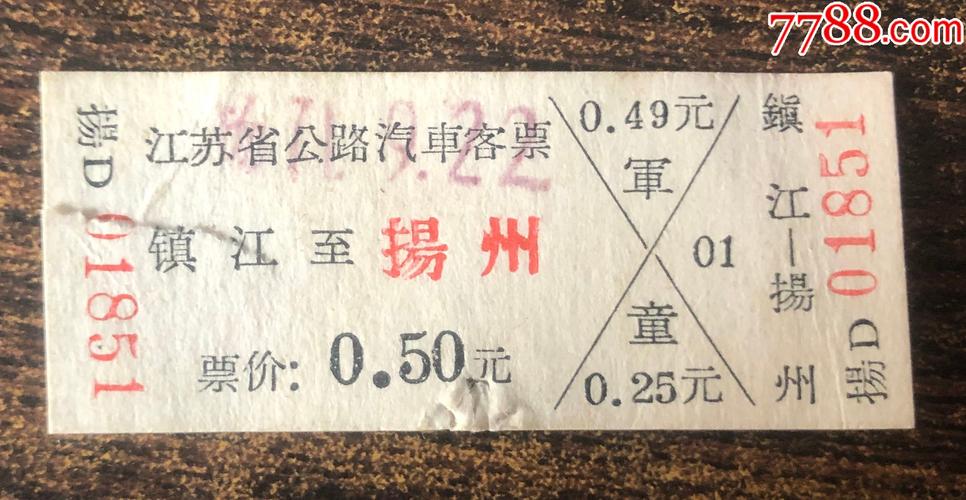 7788.com
江苏省公路汽車客票
镇江至揚州
票价：0.50元
0.49元
軍
01
童
0.25元
鎮江—揚州
揚D 01851
揚D 01851